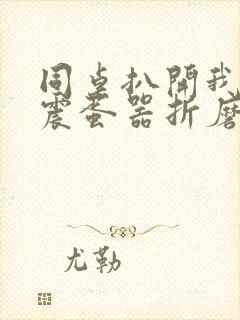 同桌扒開我
震蛋器折磨
尤勒